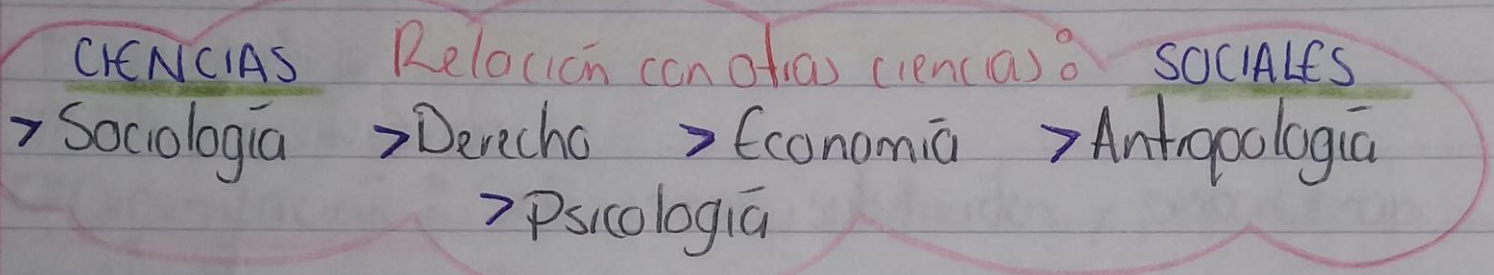 CIENCIAS Relación con otras ciencias: SOCIALES
> Sociología > Derecho > Economía > Antropología
> Psicología